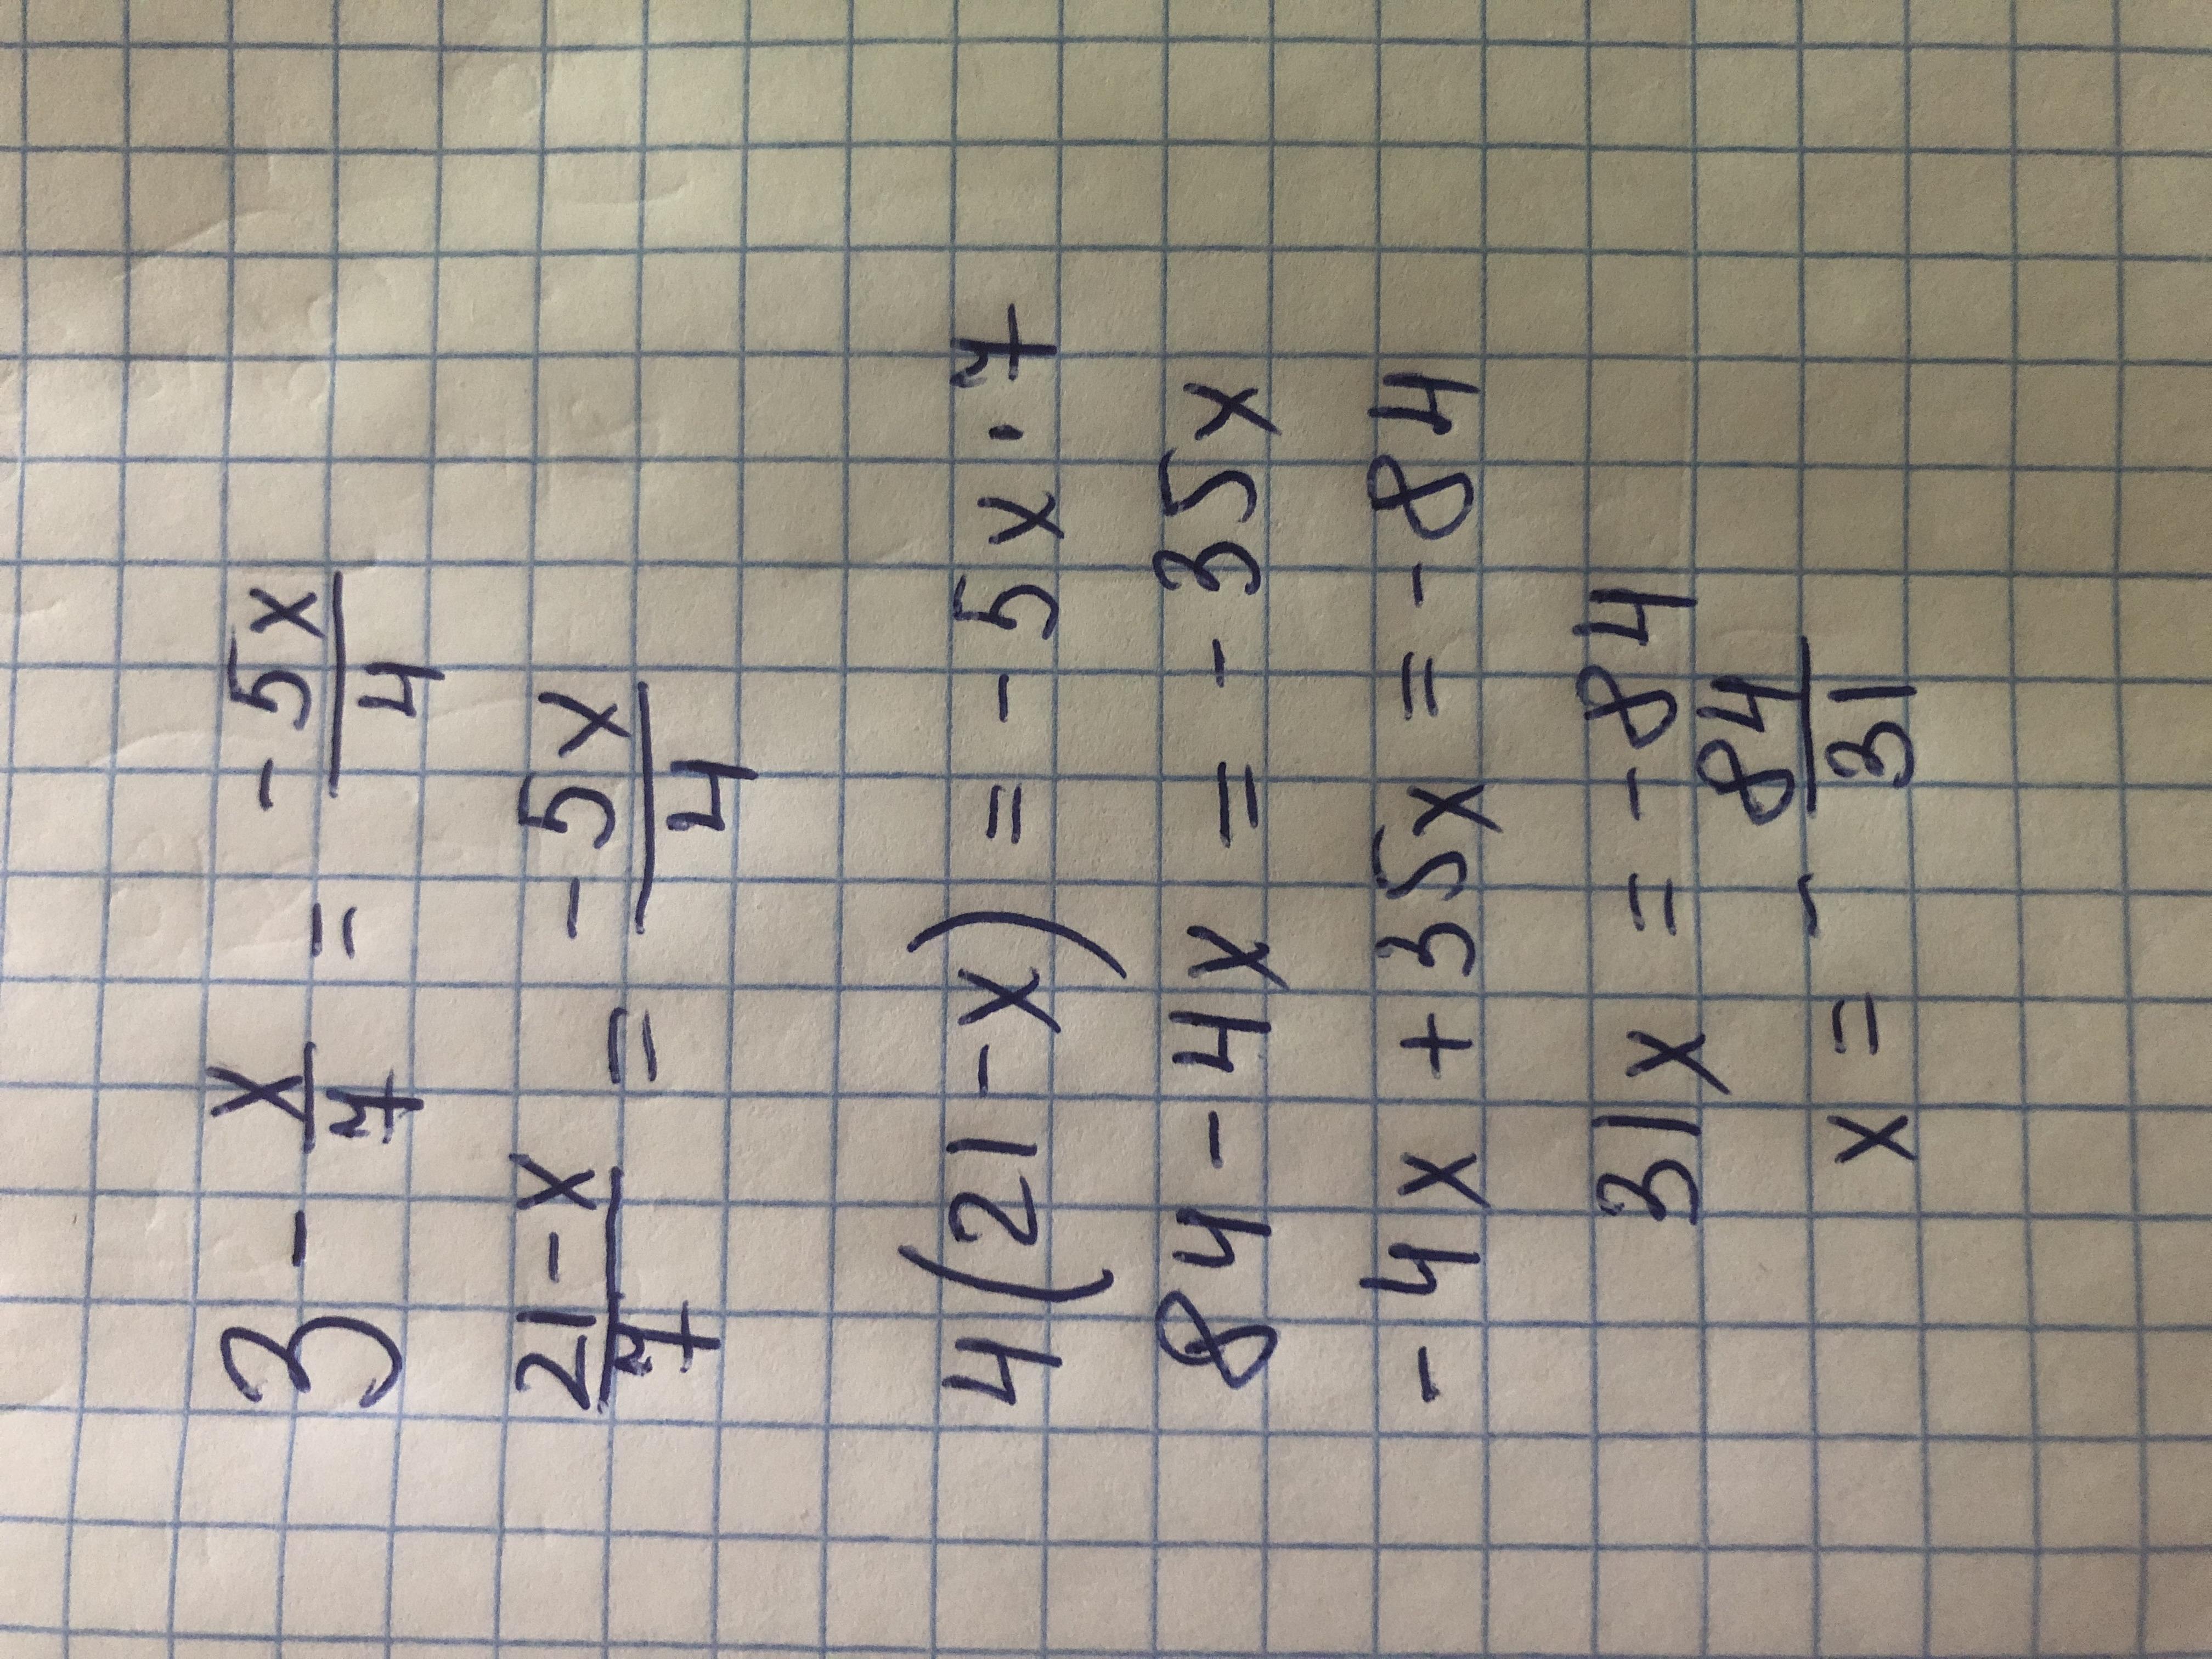 3 - x/7 = -5x/4
21-x/7 = -5x/4
4(21-x) = -5x·7
84-4x = -35x
-4x+35x=-84
31x = -84
x = -84/31